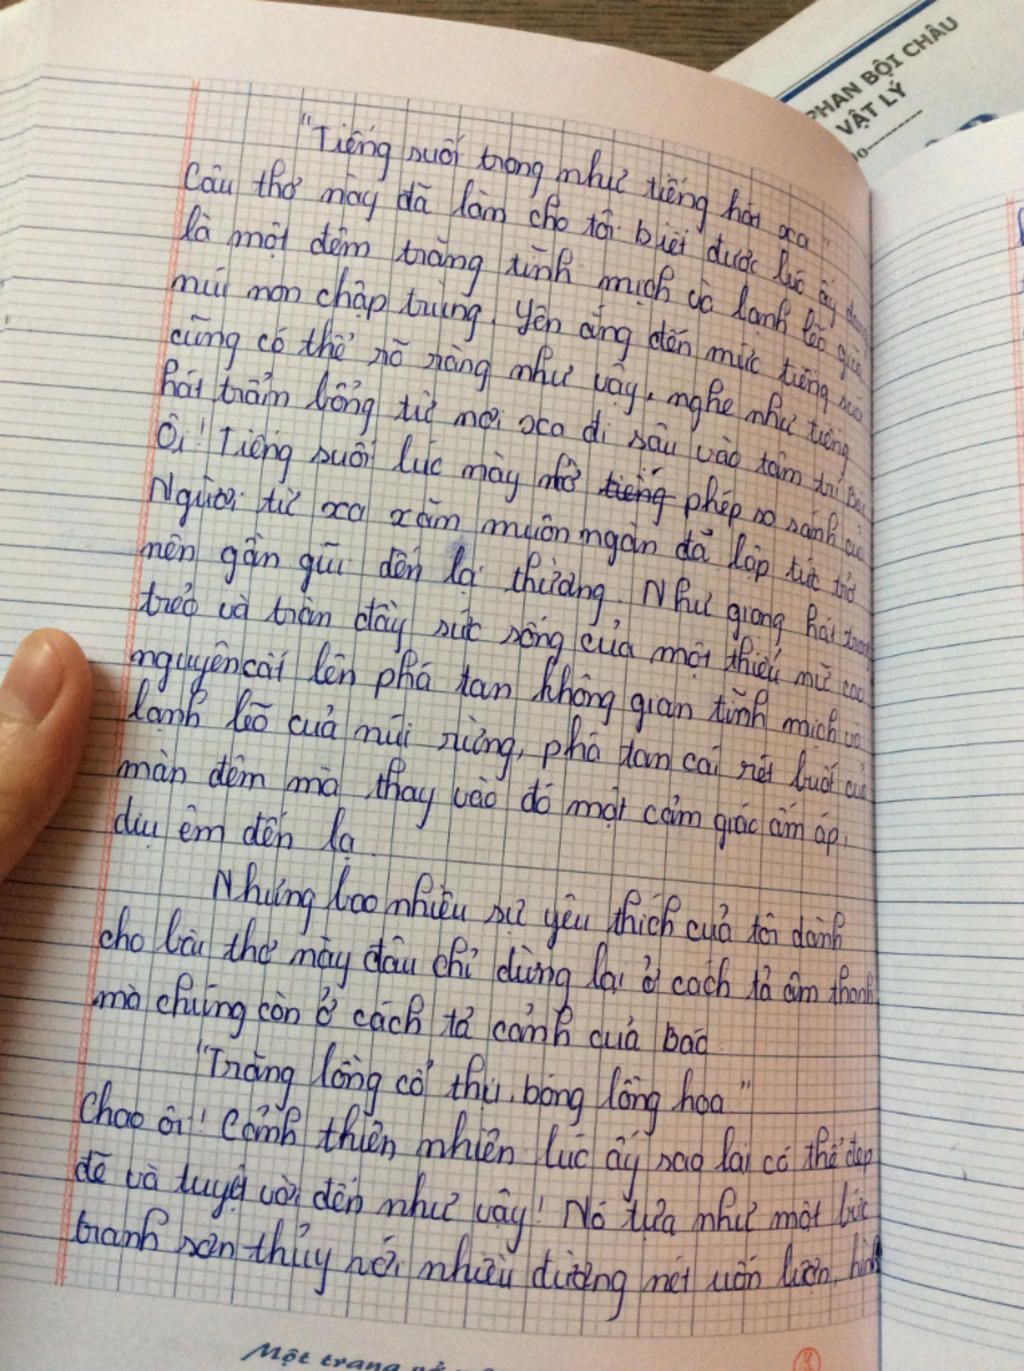 PHAN BỘI CHÂU
VẬT LÝ
"Tiếng suối trong như tiếng hát xa"
Câu thơ này đã làm cho tôi biết được lúc ấy đang
là một đêm trăng tĩnh mịch và lạnh lẽo giữa
núi non chập trùng. Yên ắng đến mức tiếng suối
cũng có thể rõ ràng như vậy, nghe như tiếng
hát trầm bổng từ nơi xa đi sâu vào tâm trí Bác
Ôi! Tiếng suối lúc này nhờ tiếng phép so sánh của
Người từ xa xăm muôn ngàn đã lập tức trở
nên gần gũi đến lạ thường. Như giọng hát trong
trẻo và tràn đầy sức sống của một thiếu nữ cao
nguyên cất lên phá tan không gian tĩnh mịch và
lạnh lẽo của núi rừng, phá tan cái rét buốt của
màn đêm mà thay vào đó một cảm giác ấm áp,
dịu êm đến lạ.
Nhưng bao nhiêu sự yêu thích cuả tôi dành
cho bài thơ này đâu chỉ dừng lại ở cách tả âm thanh
mà chúng còn ở cách tả cảnh quả Bác
"Trăng lồng cổ thụ, bóng lồng hoa"
Chao ôi! Cảnh thiên nhiên lúc ấy sao lại có thể đẹp
đẽ và tuyệt vời đến như vậy! Nó tựa như một bức
tranh sơn thủy với nhiều đường nét uốn lượn, hình
Một trang